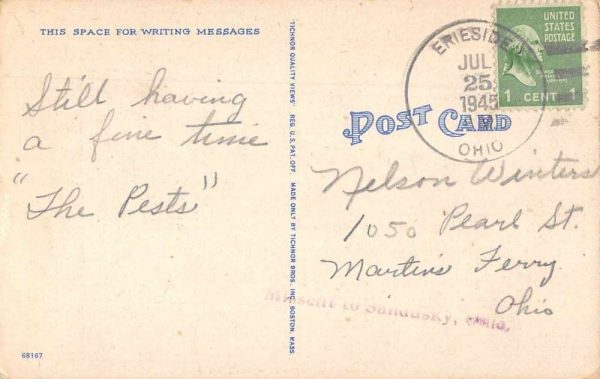 THIS SPACE FOR WRITING MESSAGES
Still having
a fine time
"The Pests"
68167
TICHNOR QUALITY VIEWS REG. U.S. PAT. OFF. MADE ONLY BY TICHNOR BROS. INC. BOSTON, MASS.
POST CARD
ERIESIDE
JUL
25
1945
OHIO
UNITED
STATES
POSTAGE
1 CENT 1
Nelson Winters
1050 Pearl St.
Martins Ferry
Ohio
Missent to Sandusky, Ohio,